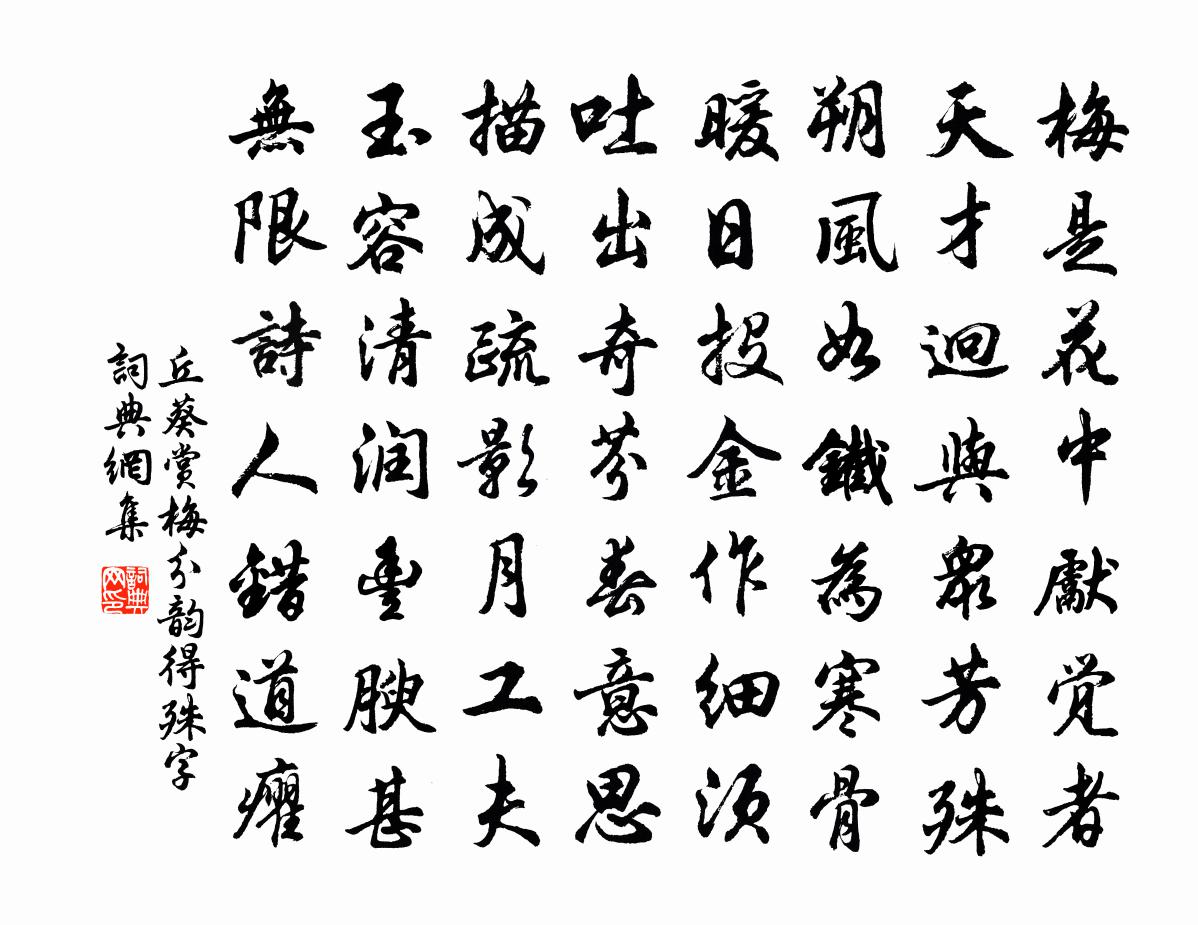 梅是花中獻觉者
天才迥與眾芳殊
朔風如鐵為寒骨
暖日投金作细须
吐出奇芬春意思
描成疏影月工夫
玉容清润豊腴甚
無限詩人錯道癯
丘葵賞梅分韵得殊字
詞典網集
詞典網印